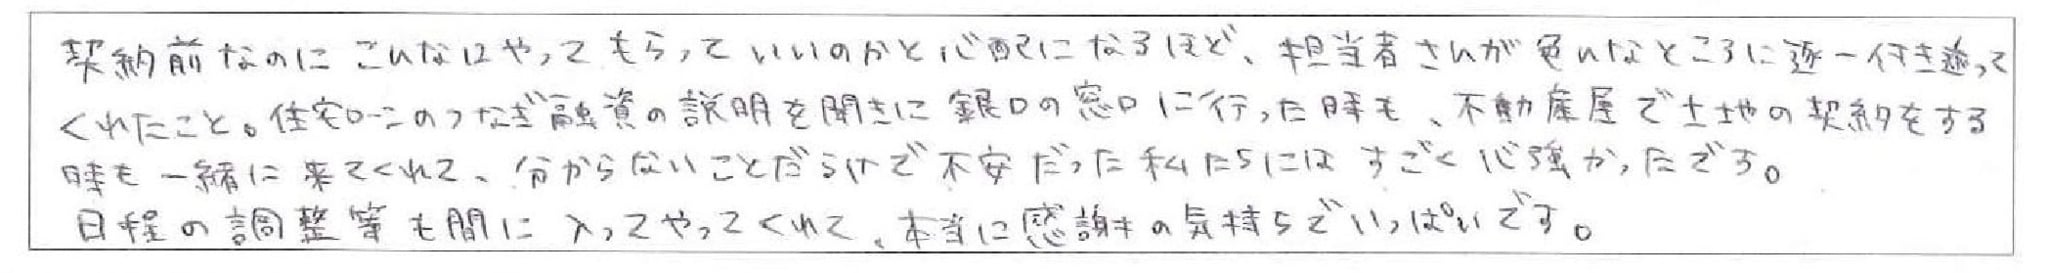 契約前なのに こんなにやって もらって いいのかと心配になるほど、担当者さんが色んなところに逐一付き添って
くれたこと。住宅ローンのつなぎ融資の説明を聞きに銀口の窓口に行った時も、不動産屋で土地の契約をする
時も一緒に来てくれて、分からないことだらけで不安だった私たちには すごく心強かったです。
日程の調整等も間に入ってやってくれて、本当に感謝の気持ちでいっぱいです。